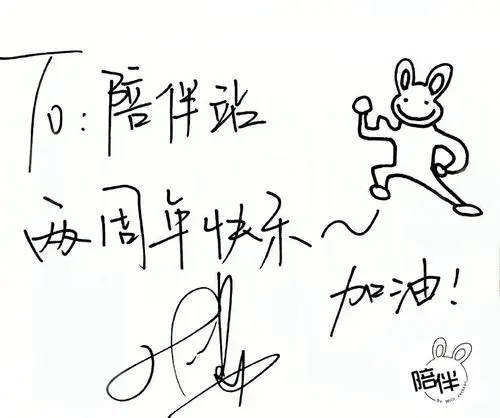 To:陪伴站
两周年快乐~
加油!
陪伴